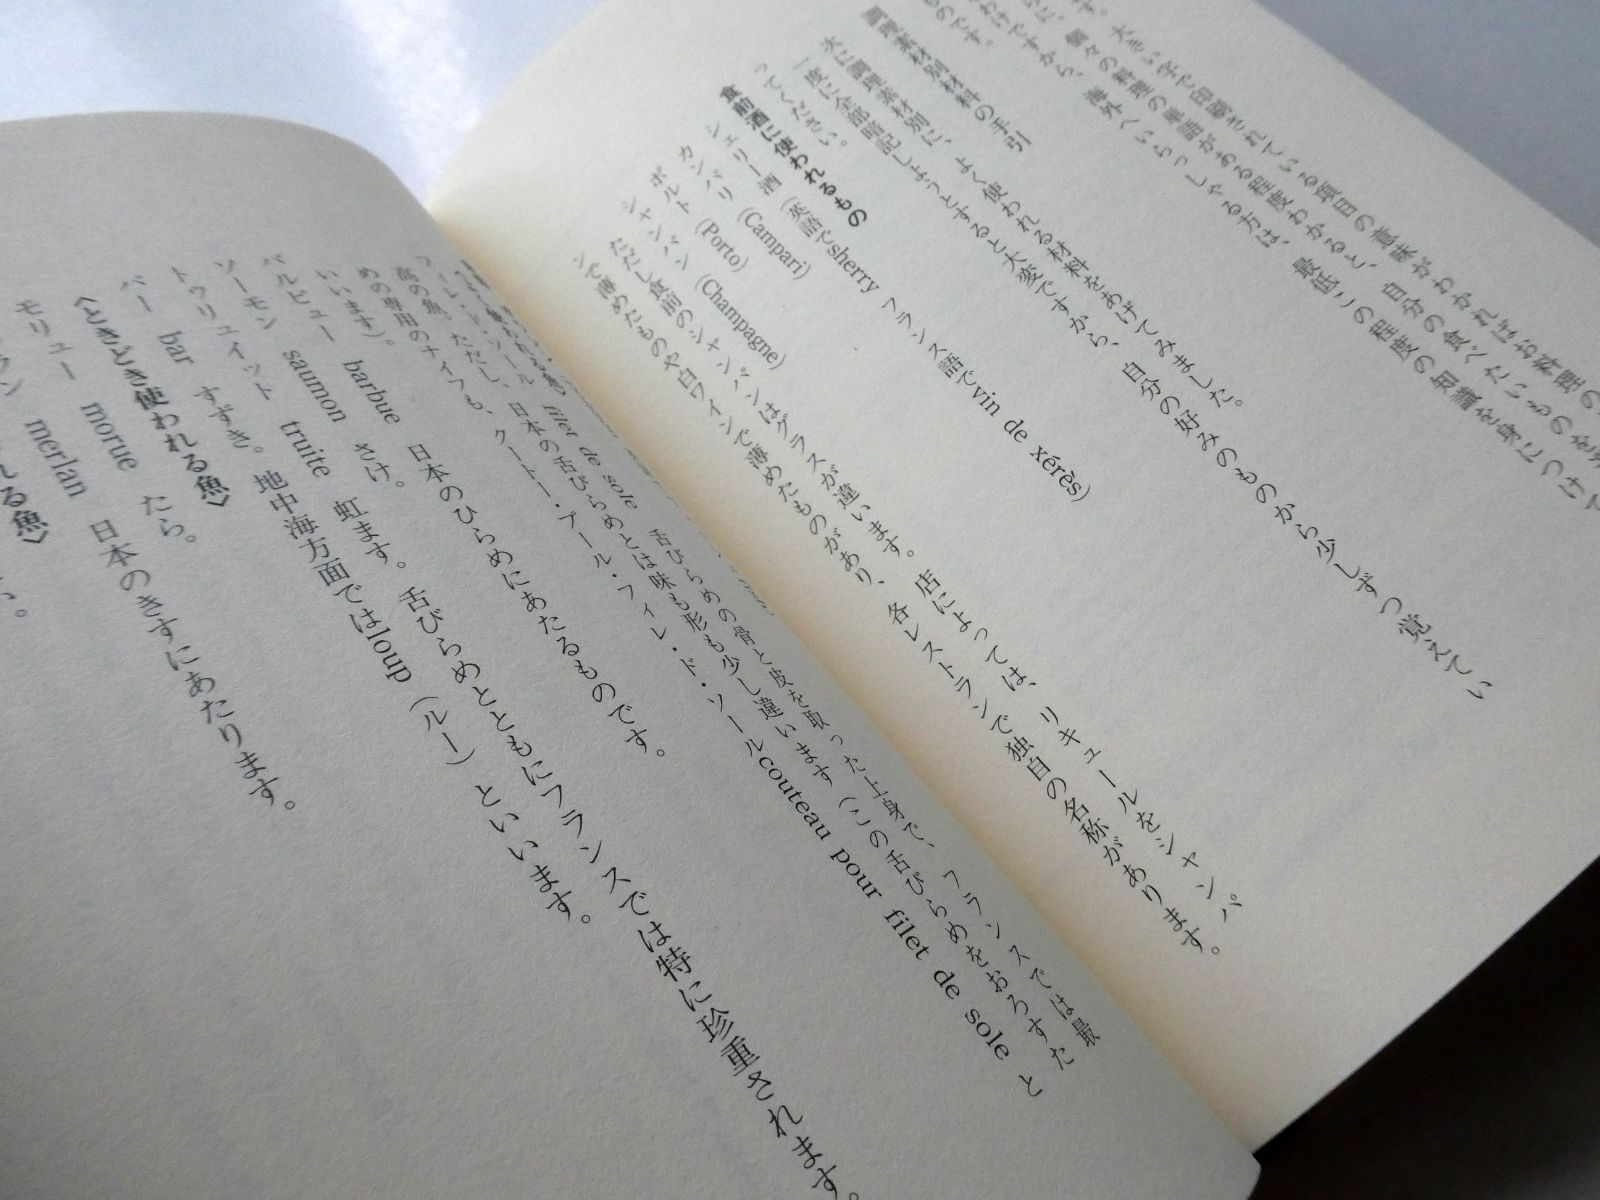 す。
大きい字で印刷されている項目の意味がわかればお料理の
に、個々の料理の単語がある程度わかると、自分の食べたいものを
わけですから、海外へいらっしゃる方は、最低この程度の知識を身につけて
ものです。
調理素材別材料の手引
次に調理素材別に、よく使われる材料をあげてみました。
一度に全部暗記しようとすると大変ですから、自分の好みのものから少しずつ覚えてい
ってください。
食前酒に使われるもの
シェリー酒(英語でsherry フランス語でvin de xérès)
カンパリ (Campari)
ポルト (Porto)
シャンパン (Champagne)
ただし食前のシャンパンはグラスが違います。店によっては、リキュールをシャンパ
ンで薄めたものや白ワインで薄めたものがあり、各レストランで独自の名称があります。
フィレ・ド・ソール filet de sole 舌びらめの骨と皮を取った上身で、フランスでは最
高の魚。ただし、日本の舌びらめとは味も形も少し違います(この舌びらめをおろすた
めの専用のナイフも、クートー・プール・フィレ・ド・ソールcouteau pour filet de sole と
いいます)。
バルビュー barbue 日本のひらめにあたるものです。
ソーモン saumon さけ。
トゥリュイット truite 虹ます。舌びらめとともにフランスでは特に珍重されます。
バー bar すずき。地中海方面ではloup(ルー)といいます。
〈ときどき使われる魚〉
モリュー morue たら。
ラン merlan 日本のきすにあたります。
れる魚〉
い。